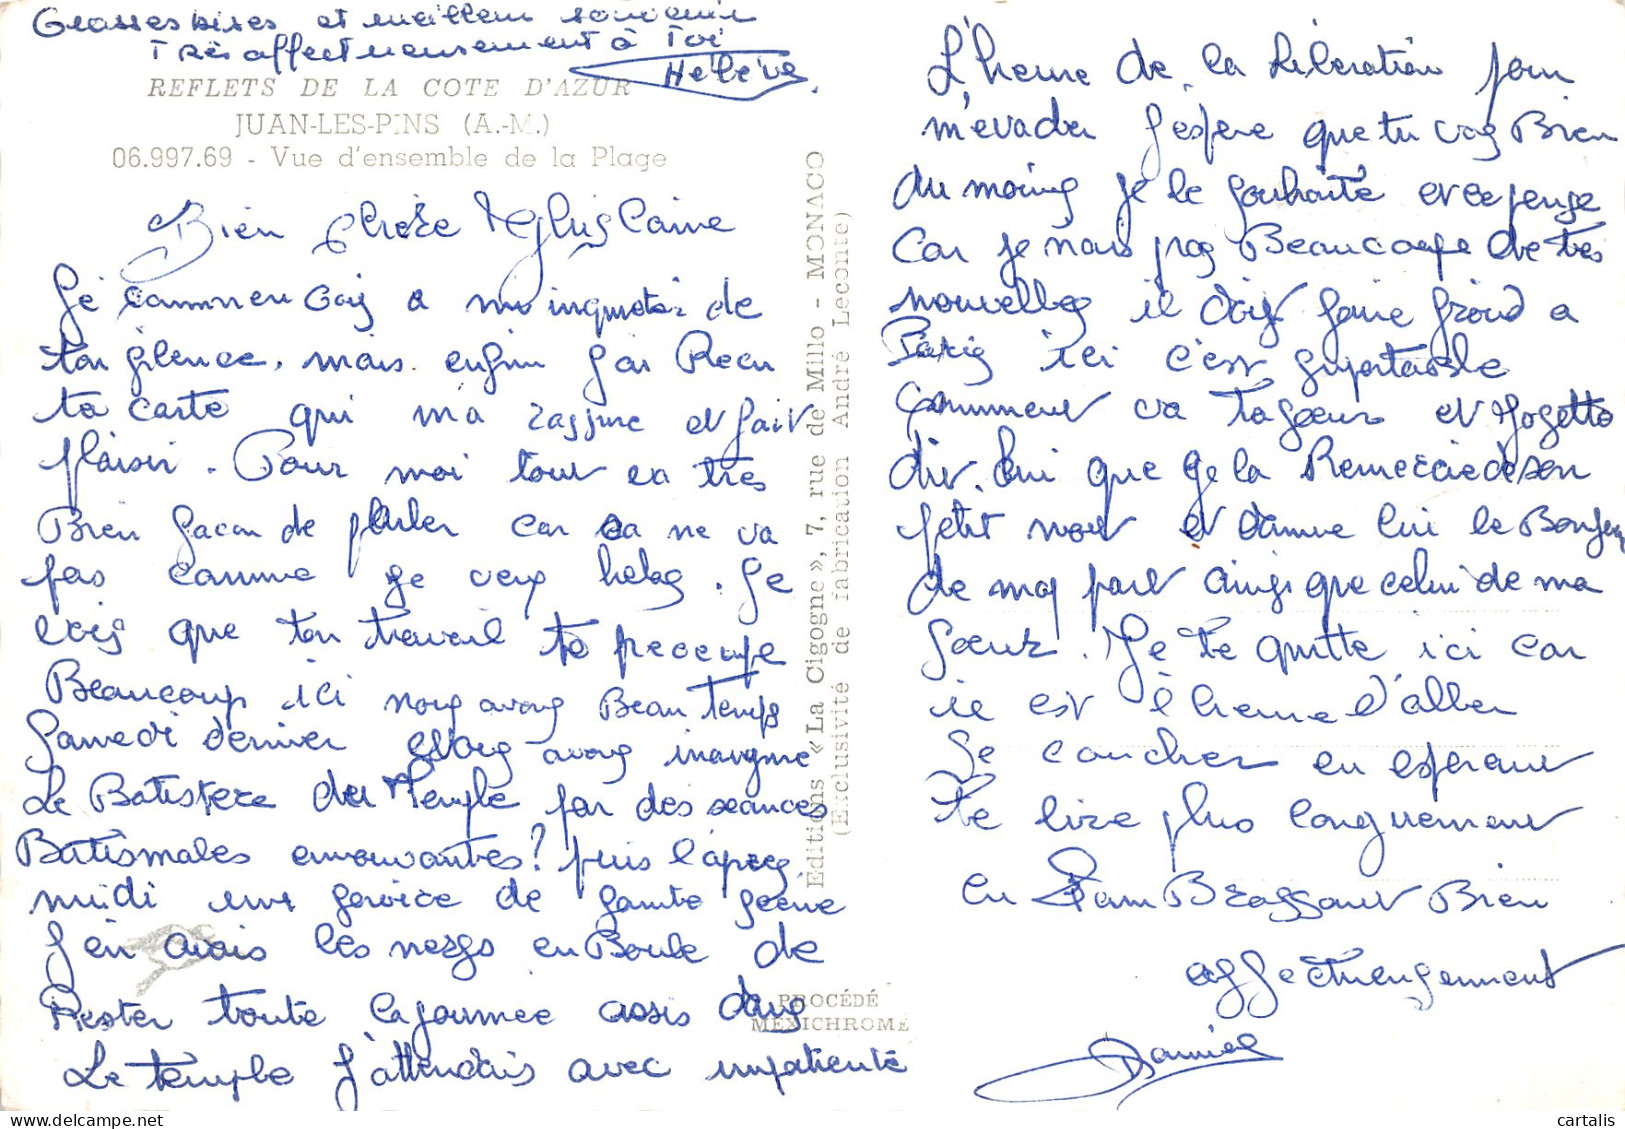 Grosses bises et meilleur souvenir
Très affectueusement à Toi
Hélène
REFLETS DE LA COTE D'AZUR
JUAN-LES-PINS (A.-M.)
06.997.69 - Vue d'ensemble de la Plage
Bien chère
Je commencais a m'inquieter de
ton silence, mais enfin j'ai Recu
ta carte qui m'a rassure et fait
plaisir. Pour moi tout va très
Bien facon de parler car ca ne va
pas comme je veux helas. Je
vois que ton travail te preocupe
Beaucoup ici nous avons Beau Temps
Samedi dernier nous avons inaugure
Le Batistere du Temple par des séances
Batismales emouvantes? puis l'apres
midi une service de sainte scène
J'en avais les nerfs en Boule de
Rester toute la journee assis dans
Le temple J'attendais avec impatiente
Editions «La Cigogne», 7, rue de Millo - MONACO
(Exclusivité de fabrication André Leconte)
PROCÉDÉ
MEXICHROME
L'heure de la Libération pour
m'evader J'espere que tu vas Bien
du moins je le souhaite et ce pense
Car je n'ais pas Beaucoupe de tes
nouvelles il dois faire froid a
Paris ici c'est suportable
Comment va ta soeur et Josette
dis lui que je la Remercie de son
petit mot et donne lui le Bonjour
de ma part ainsi que celui de ma
soeur. Je te quitte ici car
il est l'heure d'aller
se coucher en esperant
te lire plus longuement
en t'emBrassant Bien
affectueusement
Daniel
cartalis.com